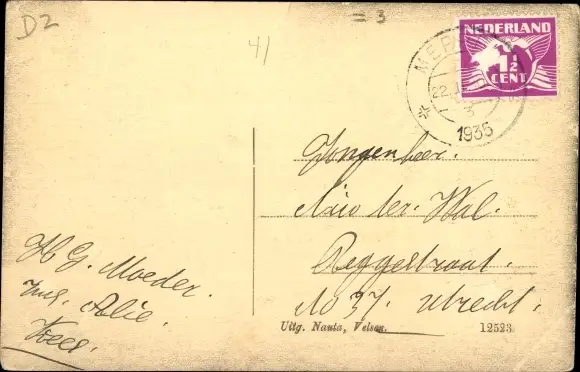 D2
41
= 3
NEDERLAND
1½
CENT
22.
1935
Jongenheer.
ter. Wal.
Reggestraat.
No 37. Utrecht.
H G. Moeder.
Alie.
Kees.
Uitg. Nauta, Velsen.
12523